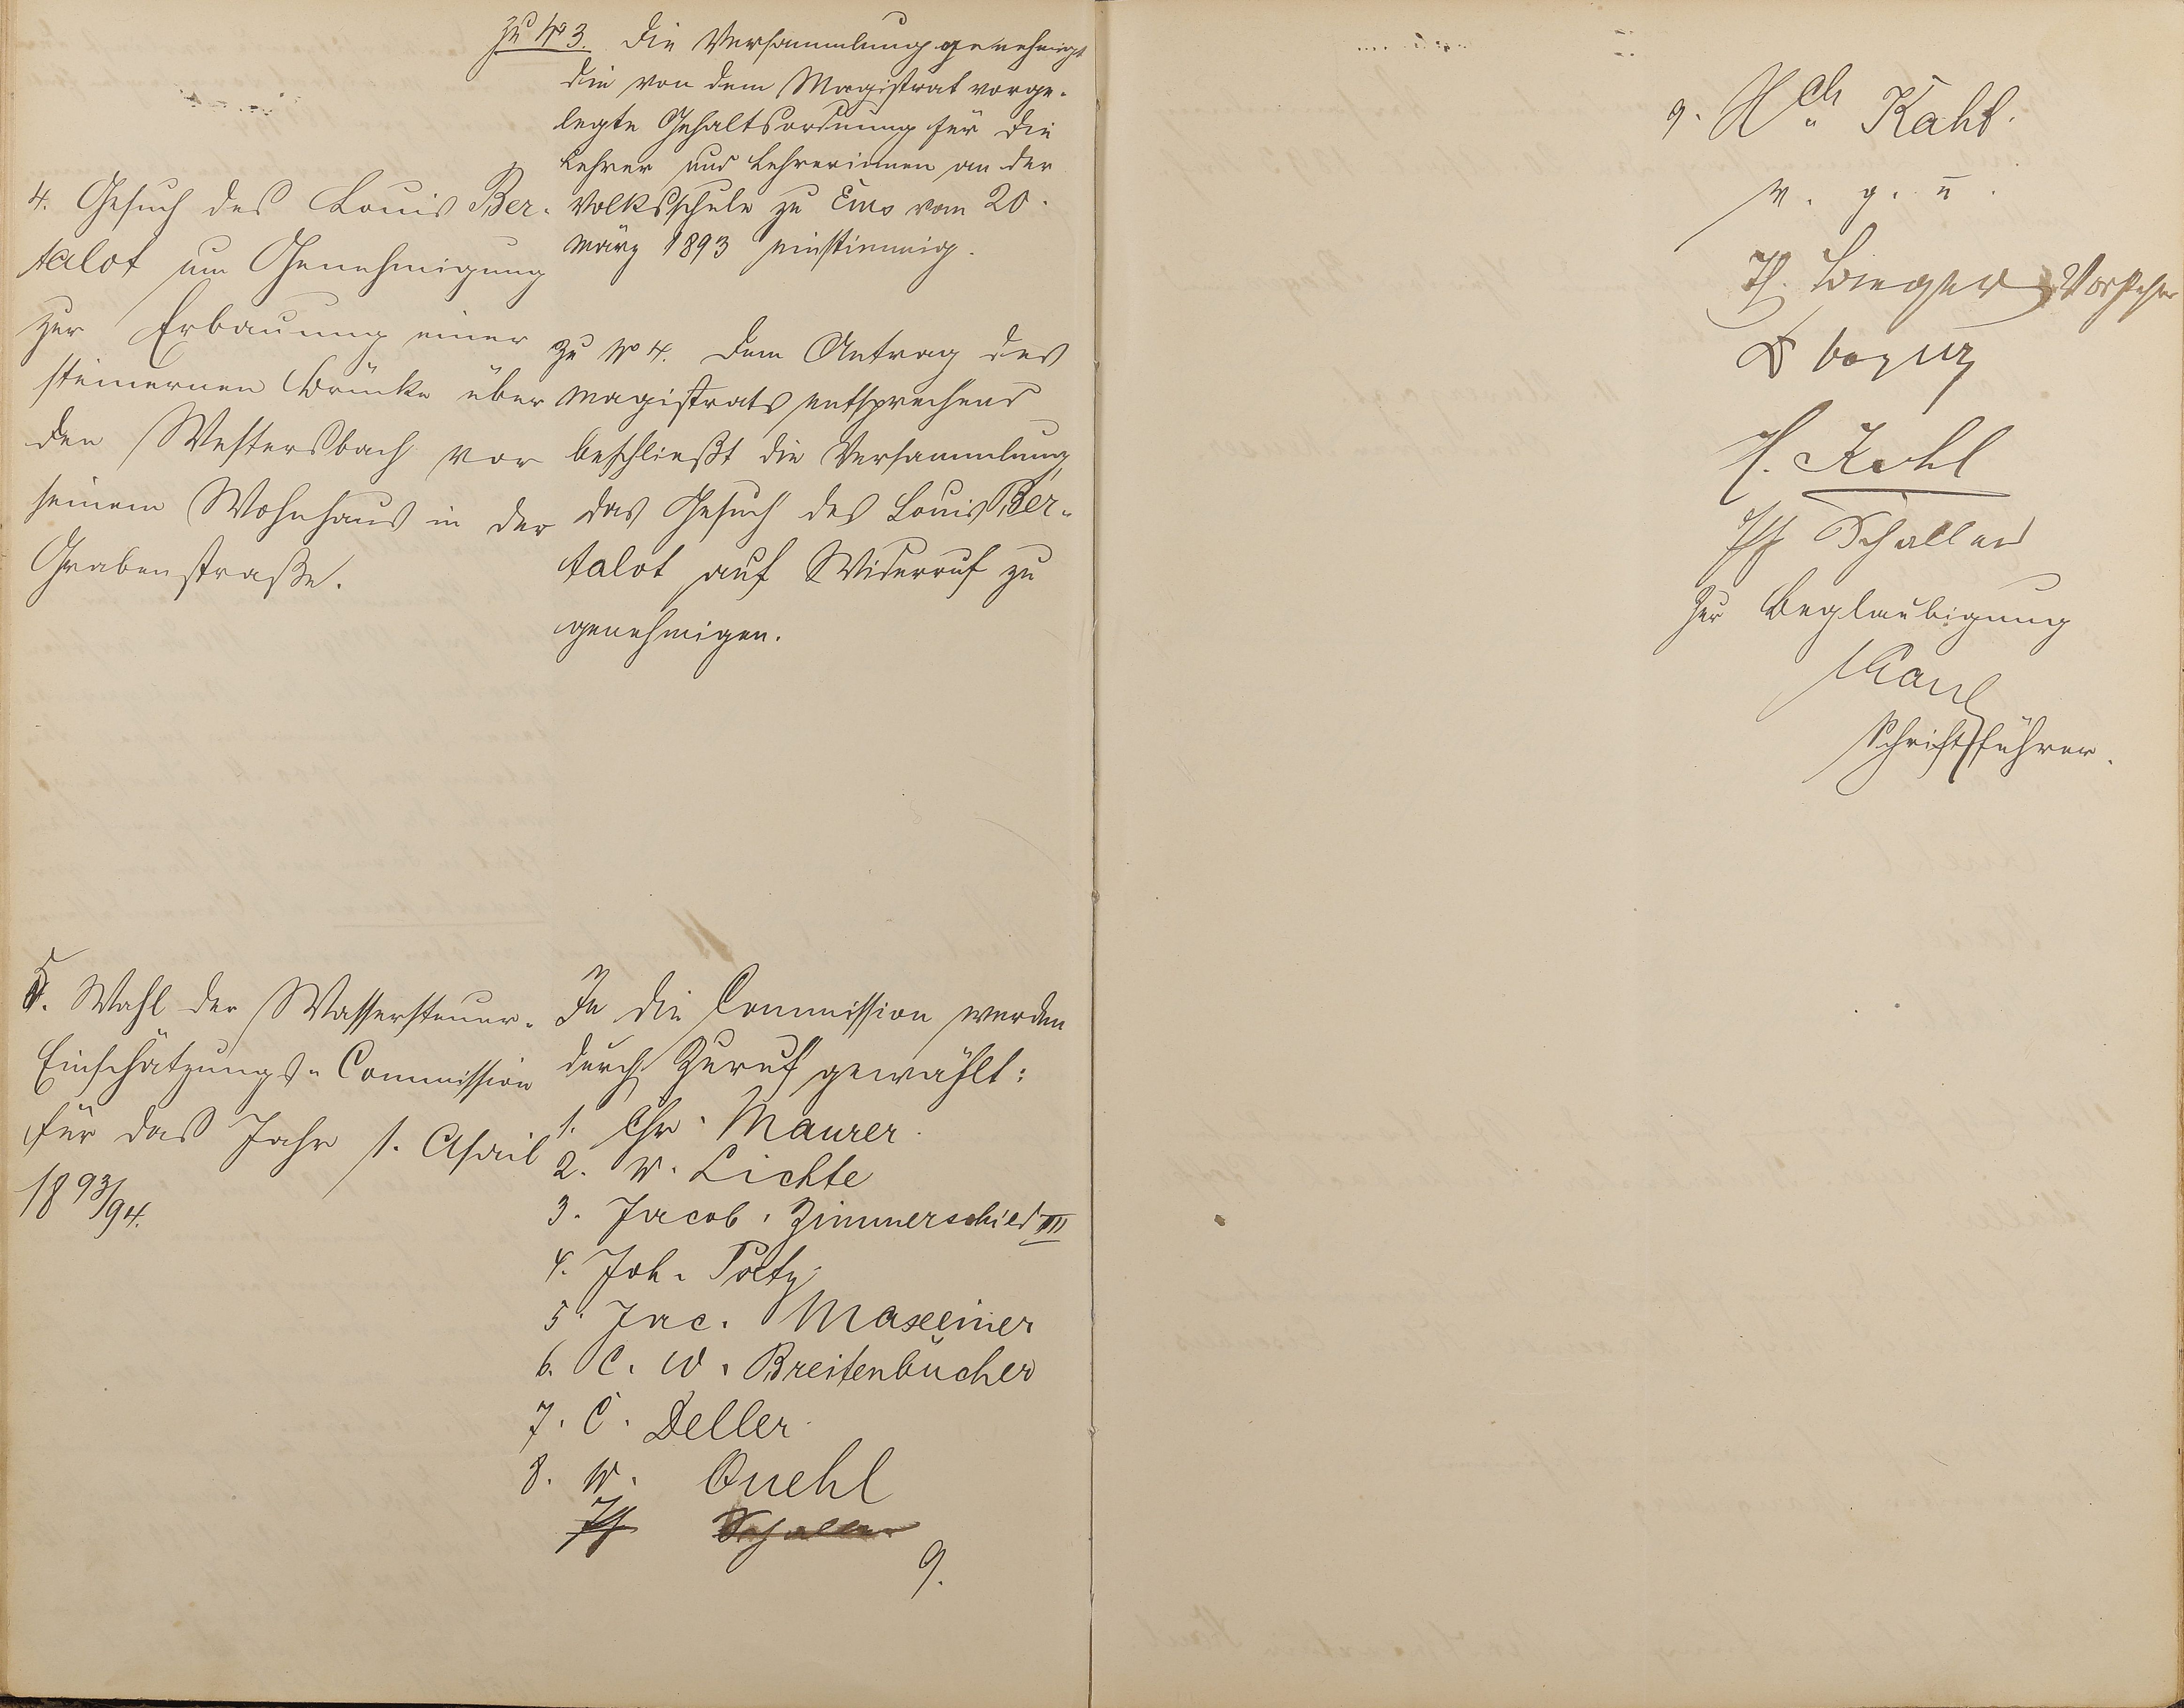 zu No 3. Die Versammlung genehmigt
die von dem Magistrat vorge-
legte Gehaltsordnung für die
Lehrer und Lehrerinnen an der
Volksschule zu Ems vom 20.
März 1893 einstimmig.
4. Gesuch des Louis Ber-
talot um Genehmigung
zur Erbauung einer
steinernen Brücke über
den Westersbach vor
seinem Wohnhaus in der
Grabenstraße.
zu No 4. Dem Antrag des
Magistrats entsprechend
beschließt die Versammlung,
das Gesuch des Louis Ber-
talot auf Widerruf zu
genehmigen.
5. Wahl der Wassersteuer-
Einschätzungs-Commission
für das Jahr 1. April
1893/94.
In die Commission werden
durch Zuruf gewählt:
1. Chr. Maurer.
2. W. Lichte
3. Jacob Zimmerschied III
4. Joh.
5. Jac. Maxeiner
6. C. W. Breitenbücher
7. C. Deller
8. W. Quehl
Schaller
9.
9. Hch Kahl.
v. g. u.
Vorsteher
H. Kohl
Schaller
Zur Beglaubigung
Kaul
Schriftführer.